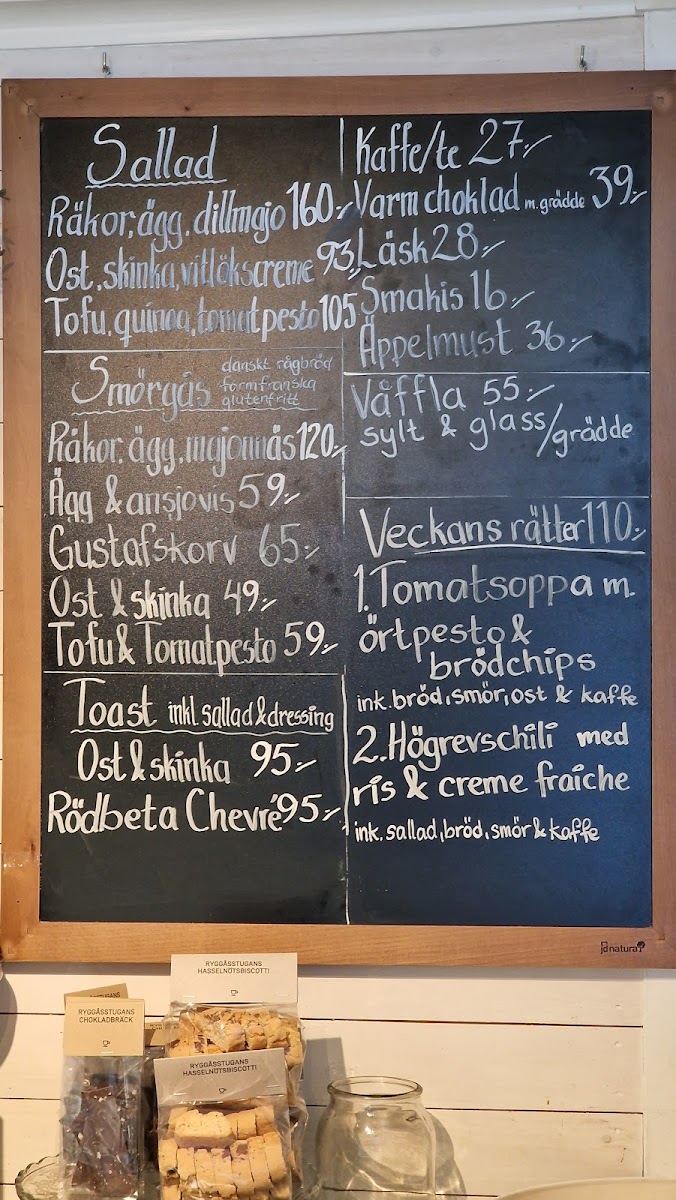 Sallad
Räkor, ägg, dillmajo 160:-
Ost, skinka, vitlökscreme 93:-
Tofu, quinoa, tomatpesto 105
Smörgås
danskt rågbröd
formfranska
glutenfritt
Räkor, ägg, majonnäs 120:-
Ägg & ansjovis 59:-
Gustafskorv 65:-
Ost & skinka 49:-
Tofu & Tomatpesto 59:-
Toast inkl. sallad & dressing
Ost & skinka 95:-
Rödbeta Chevré 95:-
Kaffe/te 27:-
Varm choklad m. grädde 39:-
Läsk 28:-
Smakis 16:-
Äppelmust 36:-
Våffla 55:-
sylt & glass/grädde
Veckans rätter 110:-
1. Tomatsoppa m.
örtpesto &
brödchips
ink. bröd, smör, ost & kaffe
2. Högrevschili med
ris & creme fraiche
ink. sallad, bröd, smör & kaffe
jdnatura
RYGGÅSSTUGANS
HASSELNÖTSBISCOTTI
RYGGÅSSTUGANS
CHOKLADBRÄCK
RYGGÅSSTUGANS
HASSELNÖTSBISCOTTI